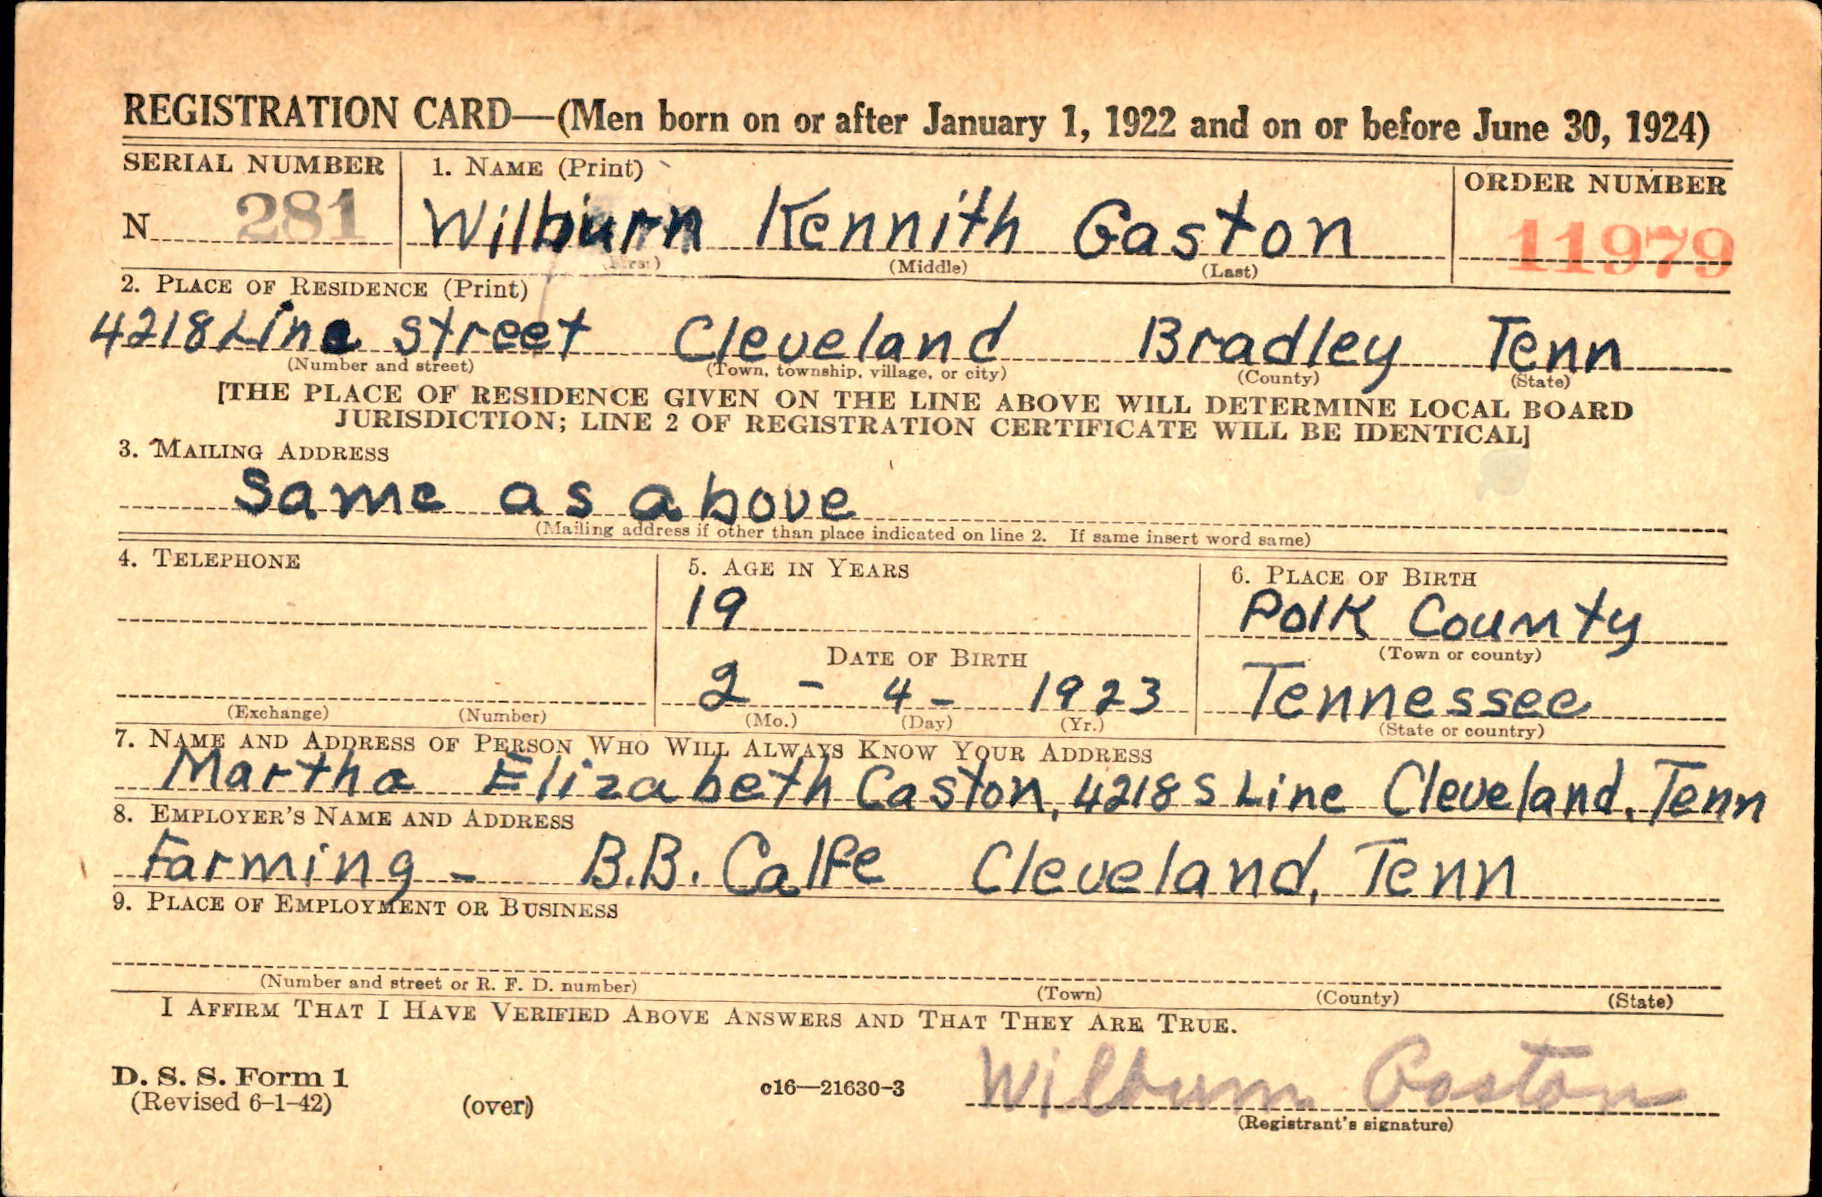 REGISTRATION CARD—(Men born on or after January 1, 1922 and on or before June 30, 1924)
SERIAL NUMBER 1. NAME (Print) ORDER NUMBER
N 281 Wilburn Kennith Gaston 11979
(First) (Middle) (Last)
2. PLACE OF RESIDENCE (Print)
4218 Line Street Cleveland Bradley Tenn
(Number and street) (Town, township, village, or city) (County) (State)
[THE PLACE OF RESIDENCE GIVEN ON THE LINE ABOVE WILL DETERMINE LOCAL BOARD
JURISDICTION; LINE 2 OF REGISTRATION CERTIFICATE WILL BE IDENTICAL]
3. MAILING ADDRESS
Same as above
(Mailing address if other than place indicated on line 2. If same insert word same)
4. TELEPHONE 5. AGE IN YEARS 6. PLACE OF BIRTH
19 Polk County
DATE OF BIRTH (Town or county)
2 - 4 - 1923 Tennessee
(Exchange) (Number) (Mo.) (Day) (Yr.) (State or country)
7. NAME AND ADDRESS OF PERSON WHO WILL ALWAYS KNOW YOUR ADDRESS
Martha Elizabeth Caston, 4218 S Line Cleveland, Tenn
8. EMPLOYER'S NAME AND ADDRESS
Farming - B.B. Calfe Cleveland, Tenn
9. PLACE OF EMPLOYMENT OR BUSINESS
(Number and street or R. F. D. number) (Town) (County) (State)
I AFFIRM THAT I HAVE VERIFIED ABOVE ANSWERS AND THAT THEY ARE TRUE.
D. S. S. Form 1
(Revised 6-1-42) (over) c16—21630-3 Wilburn Gaston
(Registrant's signature)